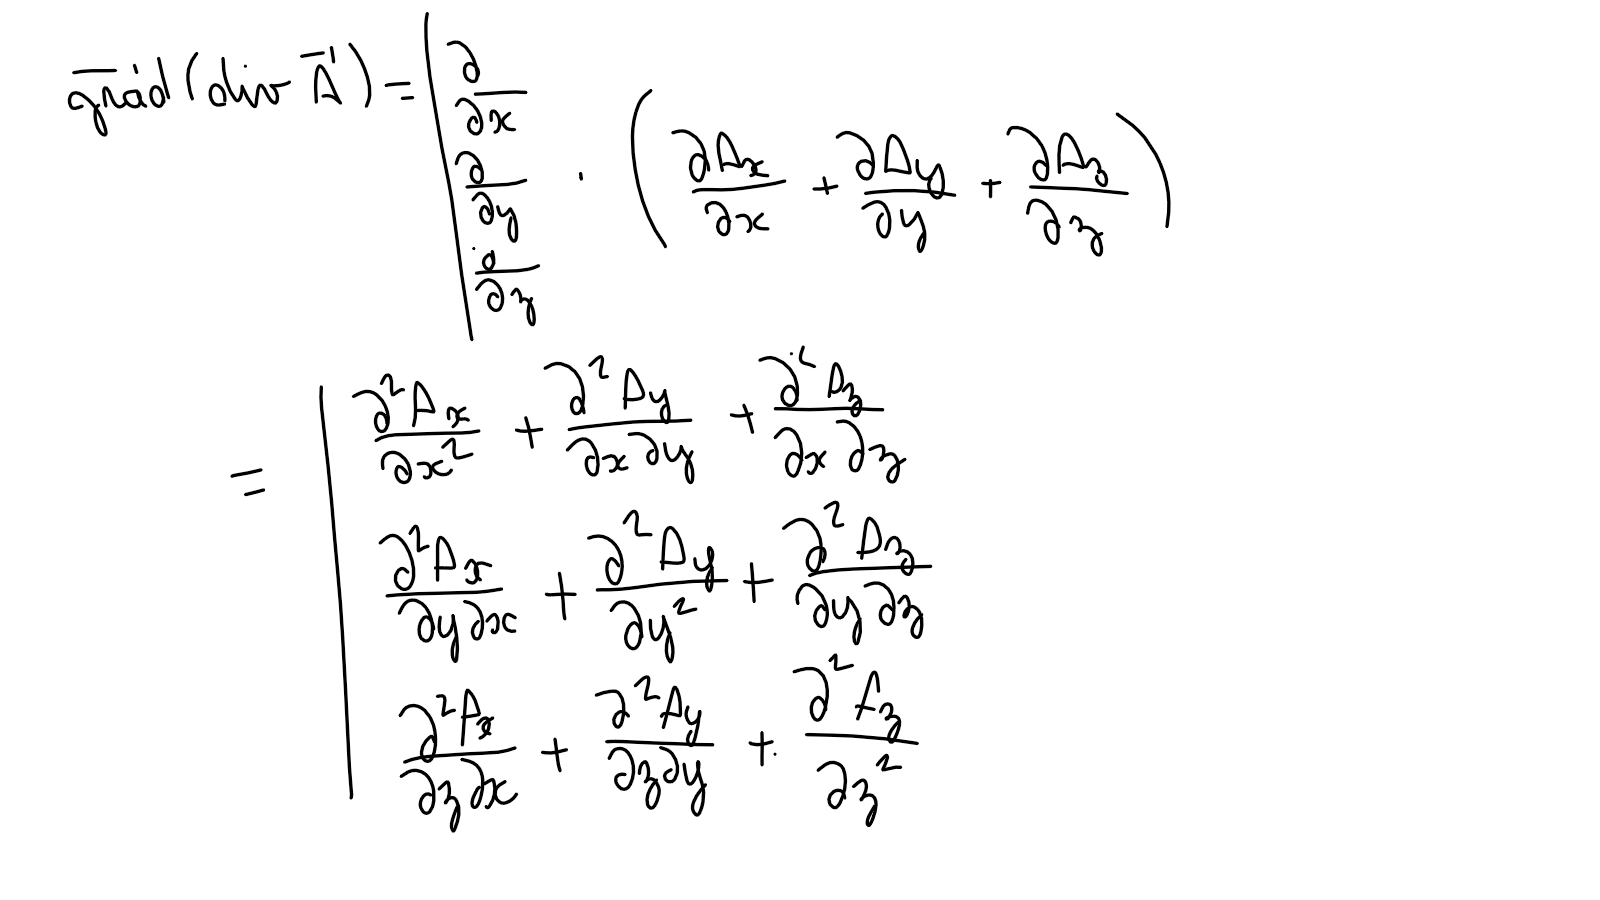 $\overrightarrow{grad}(div \vec{A}) = \left| \begin{matrix} \frac{\partial}{\partial x} \\ \frac{\partial}{\partial y} \\ \frac{\partial}{\partial z} \end{matrix} \right. \cdot \left( \frac{\partial A_x}{\partial x} + \frac{\partial A_y}{\partial y} + \frac{\partial A_z}{\partial z} \right)$
$= \left| \begin{matrix} \frac{\partial^2 A_x}{\partial x^2} + \frac{\partial^2 A_y}{\partial x \partial y} + \frac{\partial^2 A_z}{\partial x \partial z} \\ \frac{\partial^2 A_x}{\partial y \partial x} + \frac{\partial^2 A_y}{\partial y^2} + \frac{\partial^2 A_z}{\partial y \partial z} \\ \frac{\partial^2 A_x}{\partial z \partial x} + \frac{\partial^2 A_y}{\partial z \partial y} + \frac{\partial^2 A_z}{\partial z^2} \end{matrix} \right.$